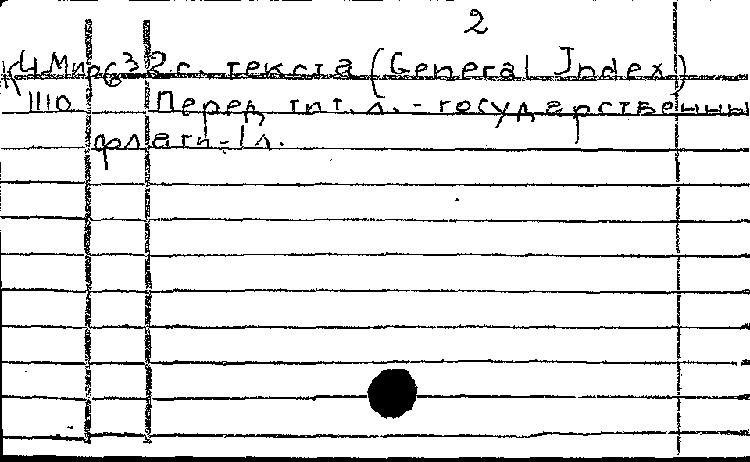 2
К4Мир6 32 с. текста (General Index)
1110 Перед тит. л. - государственны
флаги - 1 л.